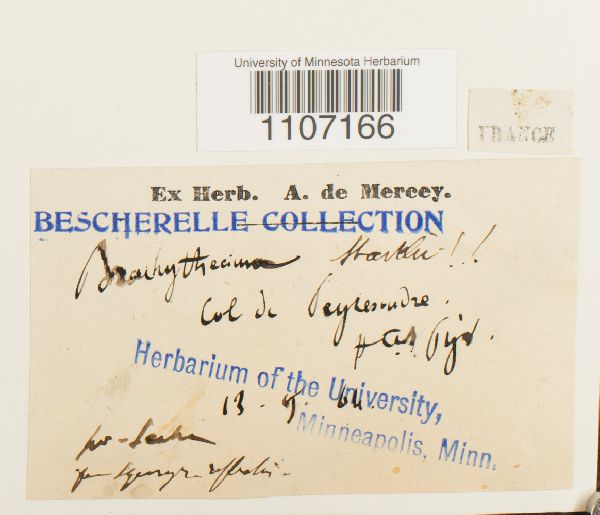 University of Minnesota Herbarium
1107166
FRANCE
Ex Herb. A. de Mercey.
BESCHERELLE COLLECTION
Brachythecium Starkii!!
Col de Peyresourde.
Herbarium of the University,
Minneapolis, Minn.